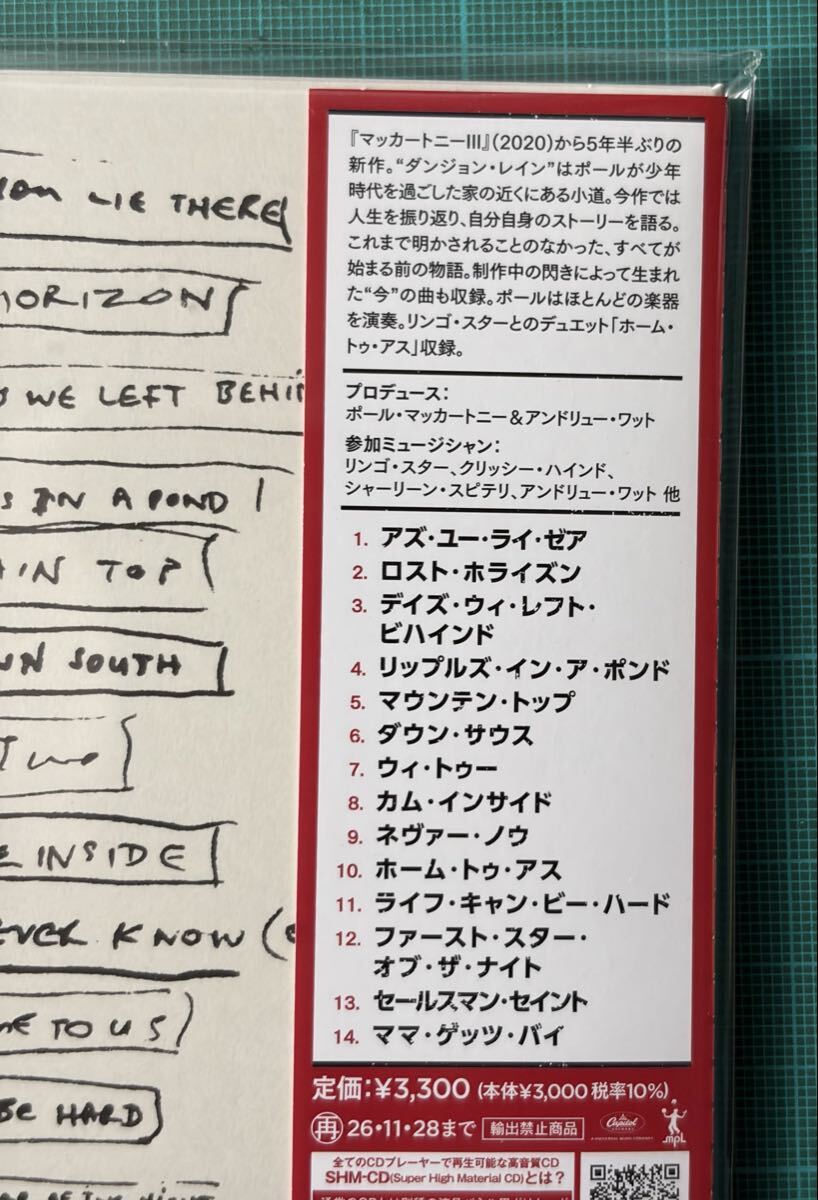 LIE THERE
HORIZON
WE LEFT BEHI
IN A POND
TOP
SOUTH
Two
INSIDE
EVER KNOW (
ME TO US
BE HARD
『マッカートニーIII』(2020)から5年半ぶりの
新作。“ダンジョン・レイン”はポールが少年
時代を過ごした家の近くにある小道。今作では
人生を振り返り、自分自身のストーリーを語る。
これまで明かされることのなかった、すべてが
始まる前の物語。制作中の閃きによって生まれ
た“今”の曲も収録。ポールはほとんどの楽器
を演奏。リンゴ・スターとのデュエット「ホーム・
トゥ・アス」収録。
プロデュース：
ポール・マッカートニー＆アンドリュー・ワット
参加ミュージシャン：
リンゴ・スター、クリッシー・ハインド、
シャーリーン・スピテリ、アンドリュー・ワット 他
1. アズ・ユー・ライ・ゼア
2. ロスト・ホライズン
3. デイズ・ウィ・レフト・
ビハインド
4. リップルズ・イン・ア・ポンド
5. マウンテン・トップ
6. ダウン・サウス
7. ウィ・トゥー
8. カム・インサイド
9. ネヴァー・ノウ
10. ホーム・トゥ・アス
11. ライフ・キャン・ビー・ハード
12. ファースト・スター・
オブ・ザ・ナイト
13. セールスマン・セイント
14. ママ・ゲッツ・バイ
定価：¥3,300 (本体¥3,000 税率10%)
再 26・11・28まで 輸出禁止商品
Capitol
MPL
全てのCDプレーヤーで再生可能な高音質CD
SHM-CD(Super High Material CD)とは？